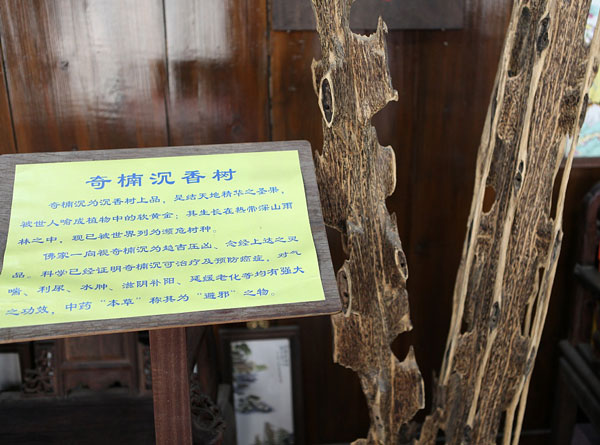 奇楠沉香树
奇楠沉为沉香树上品，是结天地精华之圣果，
被世人喻成植物中的软黄金；其生长在热带深山雨
林之中，现已被世界列为濒危树种。
佛家一向视奇楠沉为趋吉压凶、念经上达之灵
品。科学已经证明奇楠沉可治疗及预防癌症，对气
喘、利尿、水肿、滋阴补阳、延缓老化等均有强大
之功效，中药“本草”称其为“避邪”之物。